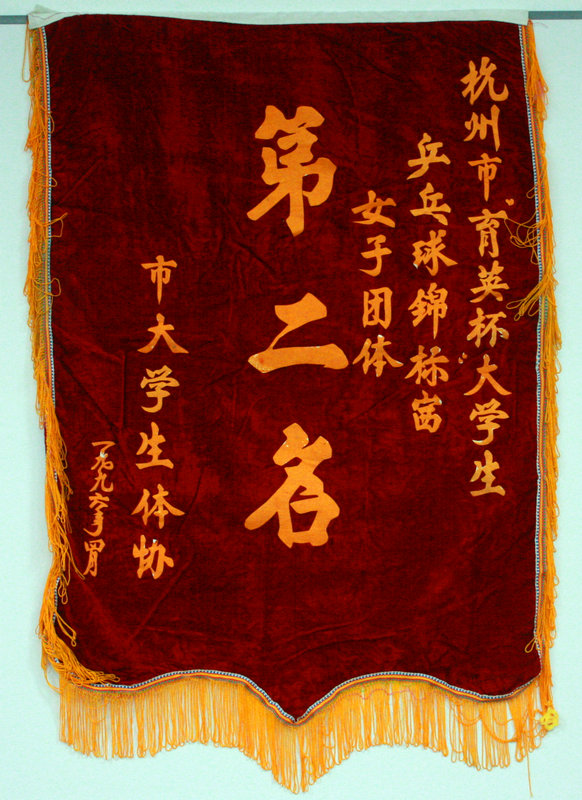 杭州市"育英杯"大学生
乒乓球錦标赛
女子团体
第二名
市大学生体协
一九九六年四月